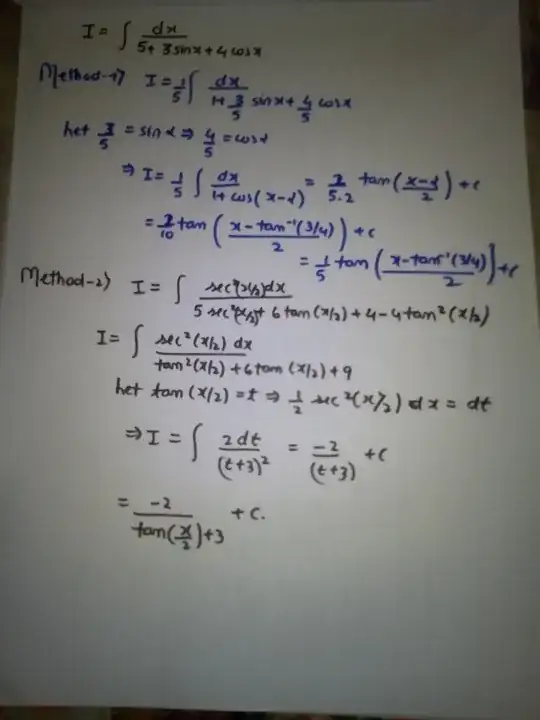 I = ∫ dx / (5 + 3 sinx + 4 cosx)
Method-1) I = 1/5 ∫ dx / (1 + 3/5 sinx + 4/5 cosx)
let 3/5 = sin α ⇒ 4/5 = cos α
⇒ I = 1/5 ∫ dx / (1 + cos(x-α)) = 2/5.2 tan((x-α)/2) + c
= 2/10 tan((x - tan⁻¹(3/4))/2) + c
= 1/5 tan((x - tan⁻¹(3/4))/2) + c
Method-2) I = ∫ sec²(x/2) dx / (5 sec²(x/2) + 6 tan(x/2) + 4 - 4 tan²(x/2))
I = ∫ sec²(x/2) dx / (tan²(x/2) + 6 tan(x/2) + 9)
let tan(x/2) = t ⇒ 1/2 sec²(x/2) dx = dt
⇒ I = ∫ 2dt / (t+3)² = -2 / (t+3) + c
= -2 / (tan(x/2) + 3) + c.